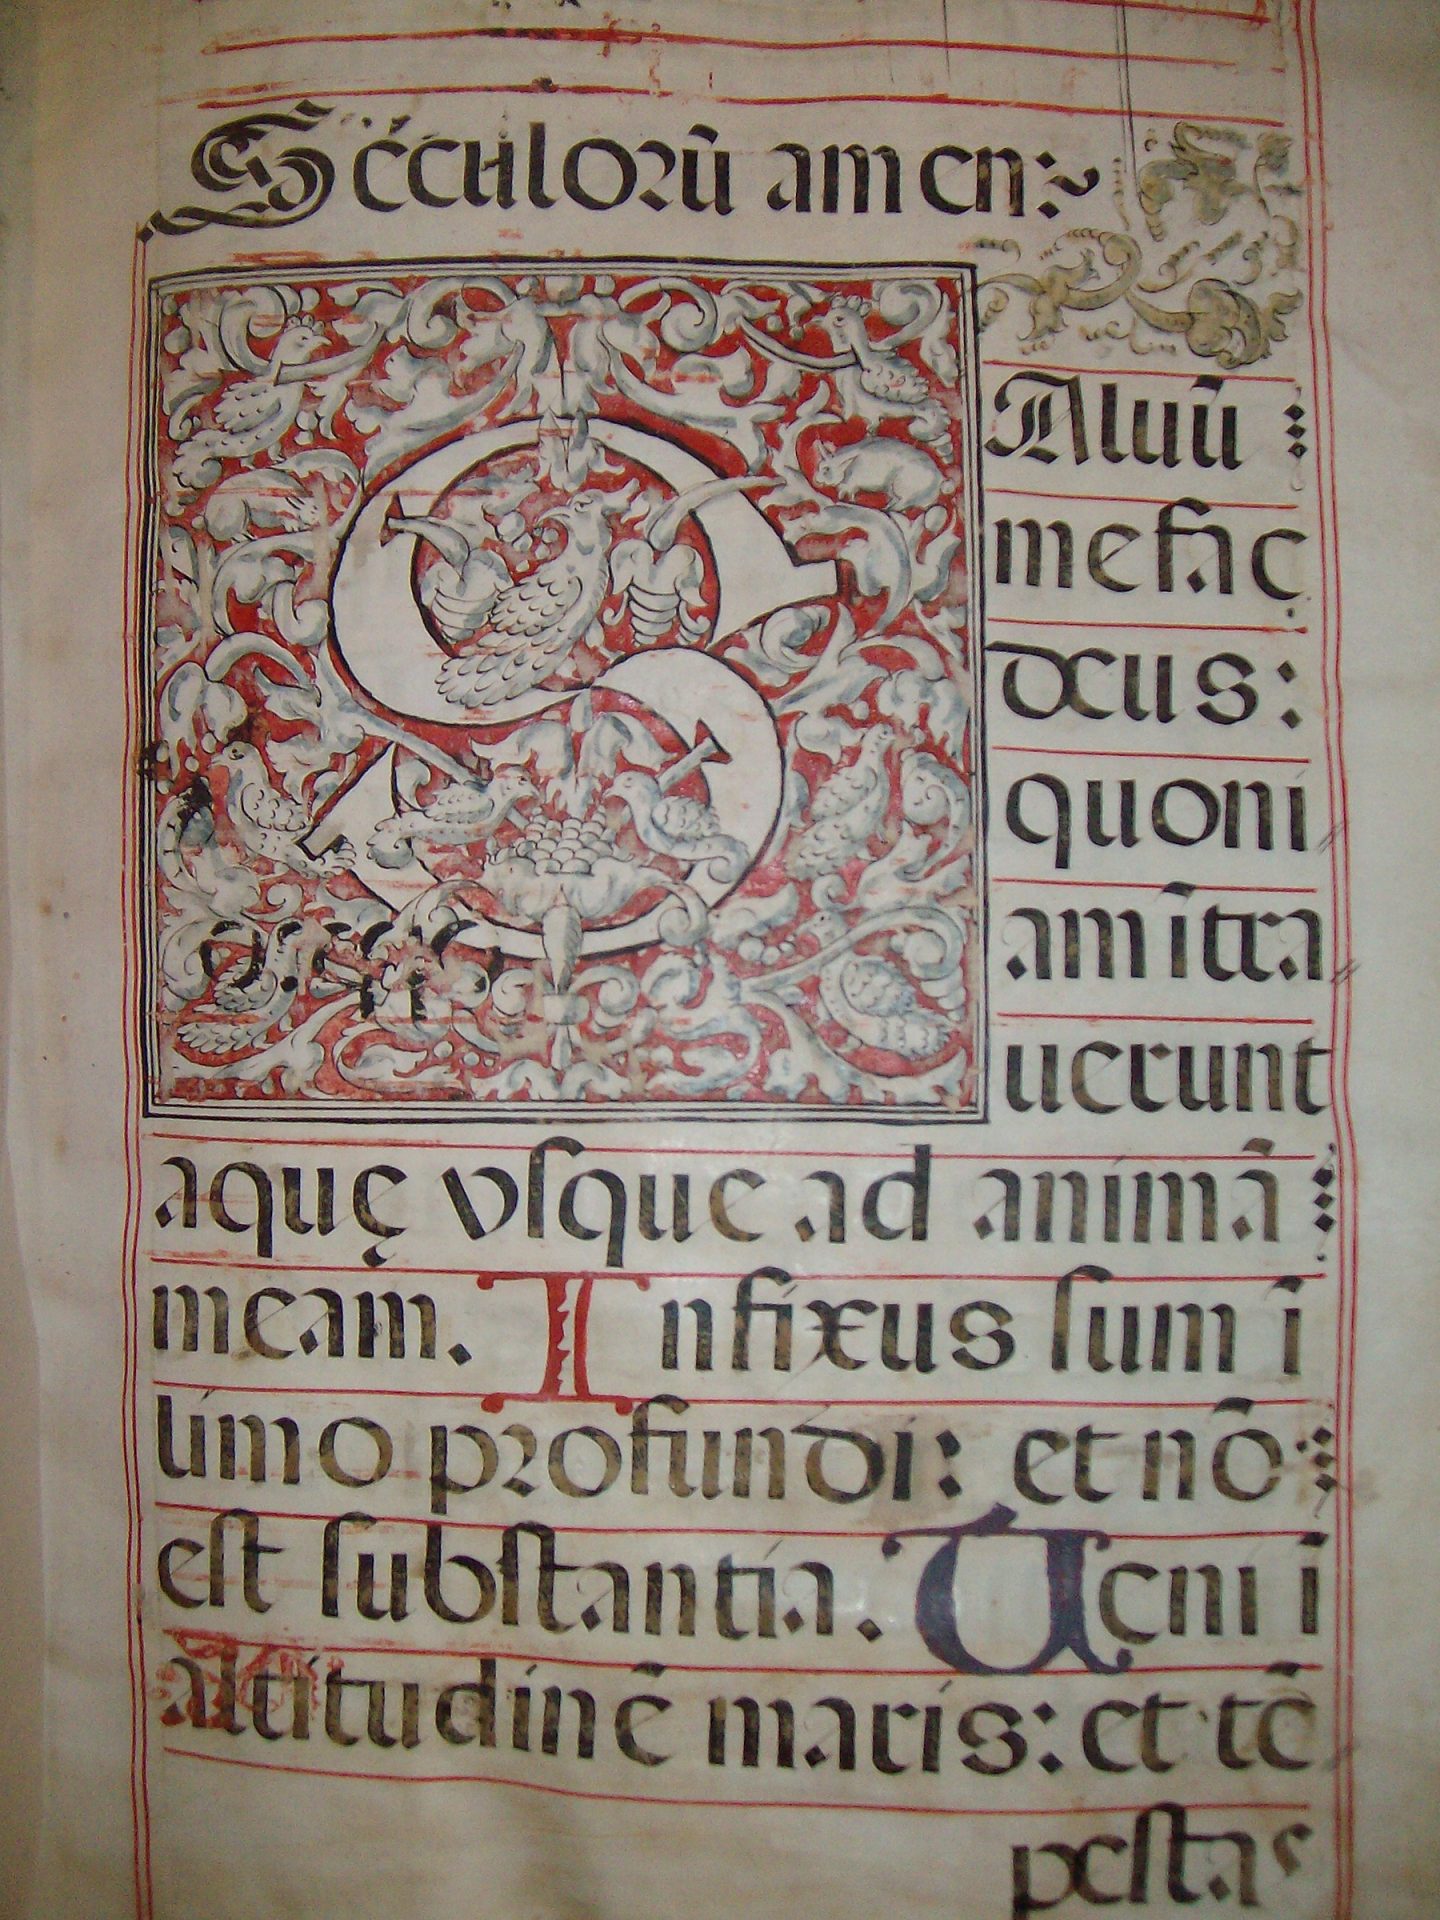 Sęculorũ amen:~
SAluũ
me fac
deus:
quoni
am ĩtra
uerunt
aquę vſque ad animã
meam. Infixus ſum ĩ
limo profundi: et nõ
eſt ſubſtantia. Ueni ĩ
altitudinẽ maris: et tẽ
peſtas